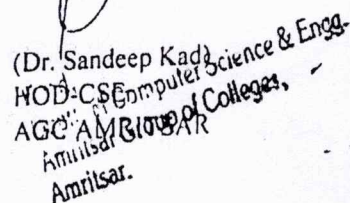 (Dr. Sandeep Kad)
HOD-CSE
AGC AMRITSAR
Computer Science & Engg.
Amritsar Group of Colleges,
Amritsar.